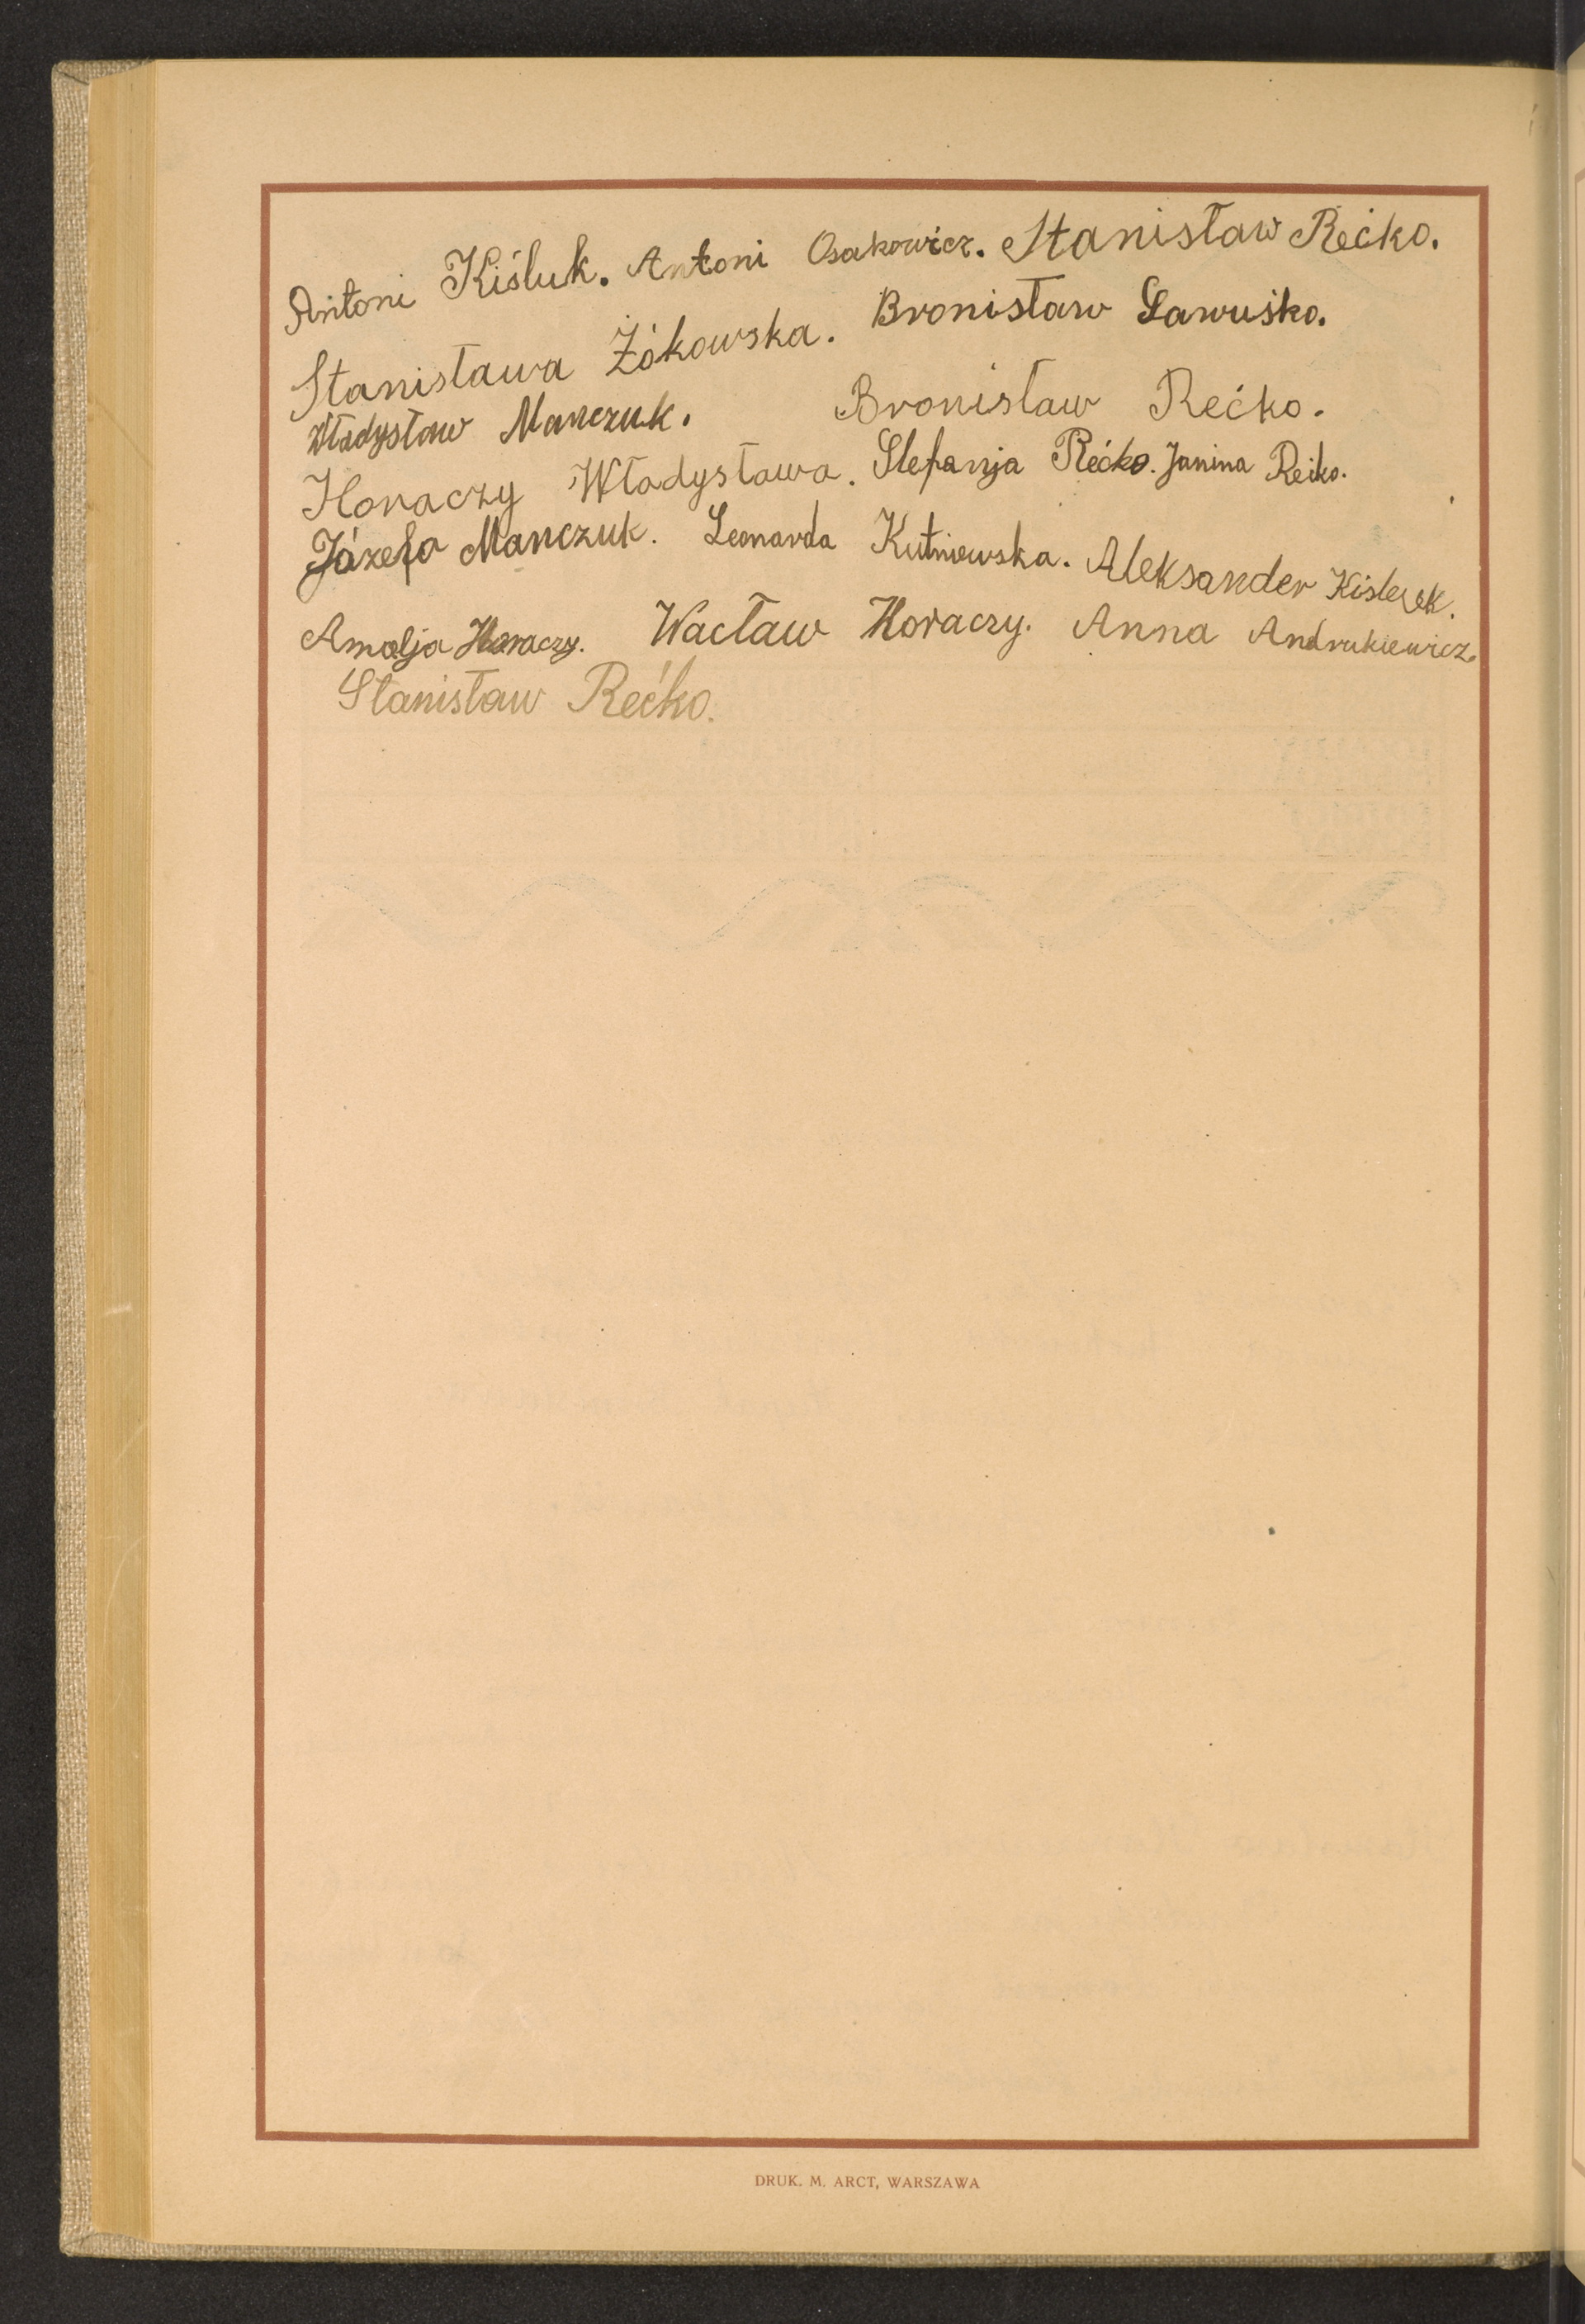 Antoni Kiśluk. Antoni Osakowicz. Stanisław Rećko.
Stanisława Żókowska. Bronisław Sawuśko.
Władysław Manczuk. Bronisław Rećko.
Horaczy Władysława. Stefanja Rećko. Janina Rećko.
Józefa Manczuk. Leonarda Kutniewska. Aleksander
Amalja Horaczy. Wacław Horaczy. Anna Andrukiewicz.
Stanisław Rećko.
DRUK. M. ARCT, WARSZAWA